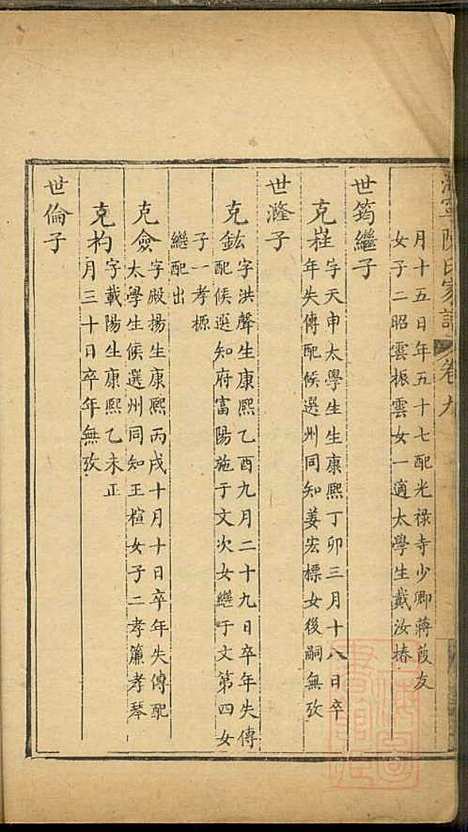 海寧陳氏家譜 卷九
月十五日年五十七配光祿寺少卿蔣葭友
女子二昭雲振雲女一適太學生戴汝椿
世筠繼子
克㠑字天申太學生生康熙丁卯三月十八日卒
年失傳配候選州同知姜宏標女後嗣無攷
世漋子
克鋐字洪聲生康熙乙酉九月二十九日卒年失傳
配候選知府富陽施于文次女繼于文第四女
子一孝標
繼配出
克僉字殿揚生康熙丙戌十月十日卒年失傳配
太學生候選州同知王楦女子二孝簾孝琴
克杓字載陽生康熙乙未正
月三十日卒年無攷
世倫子